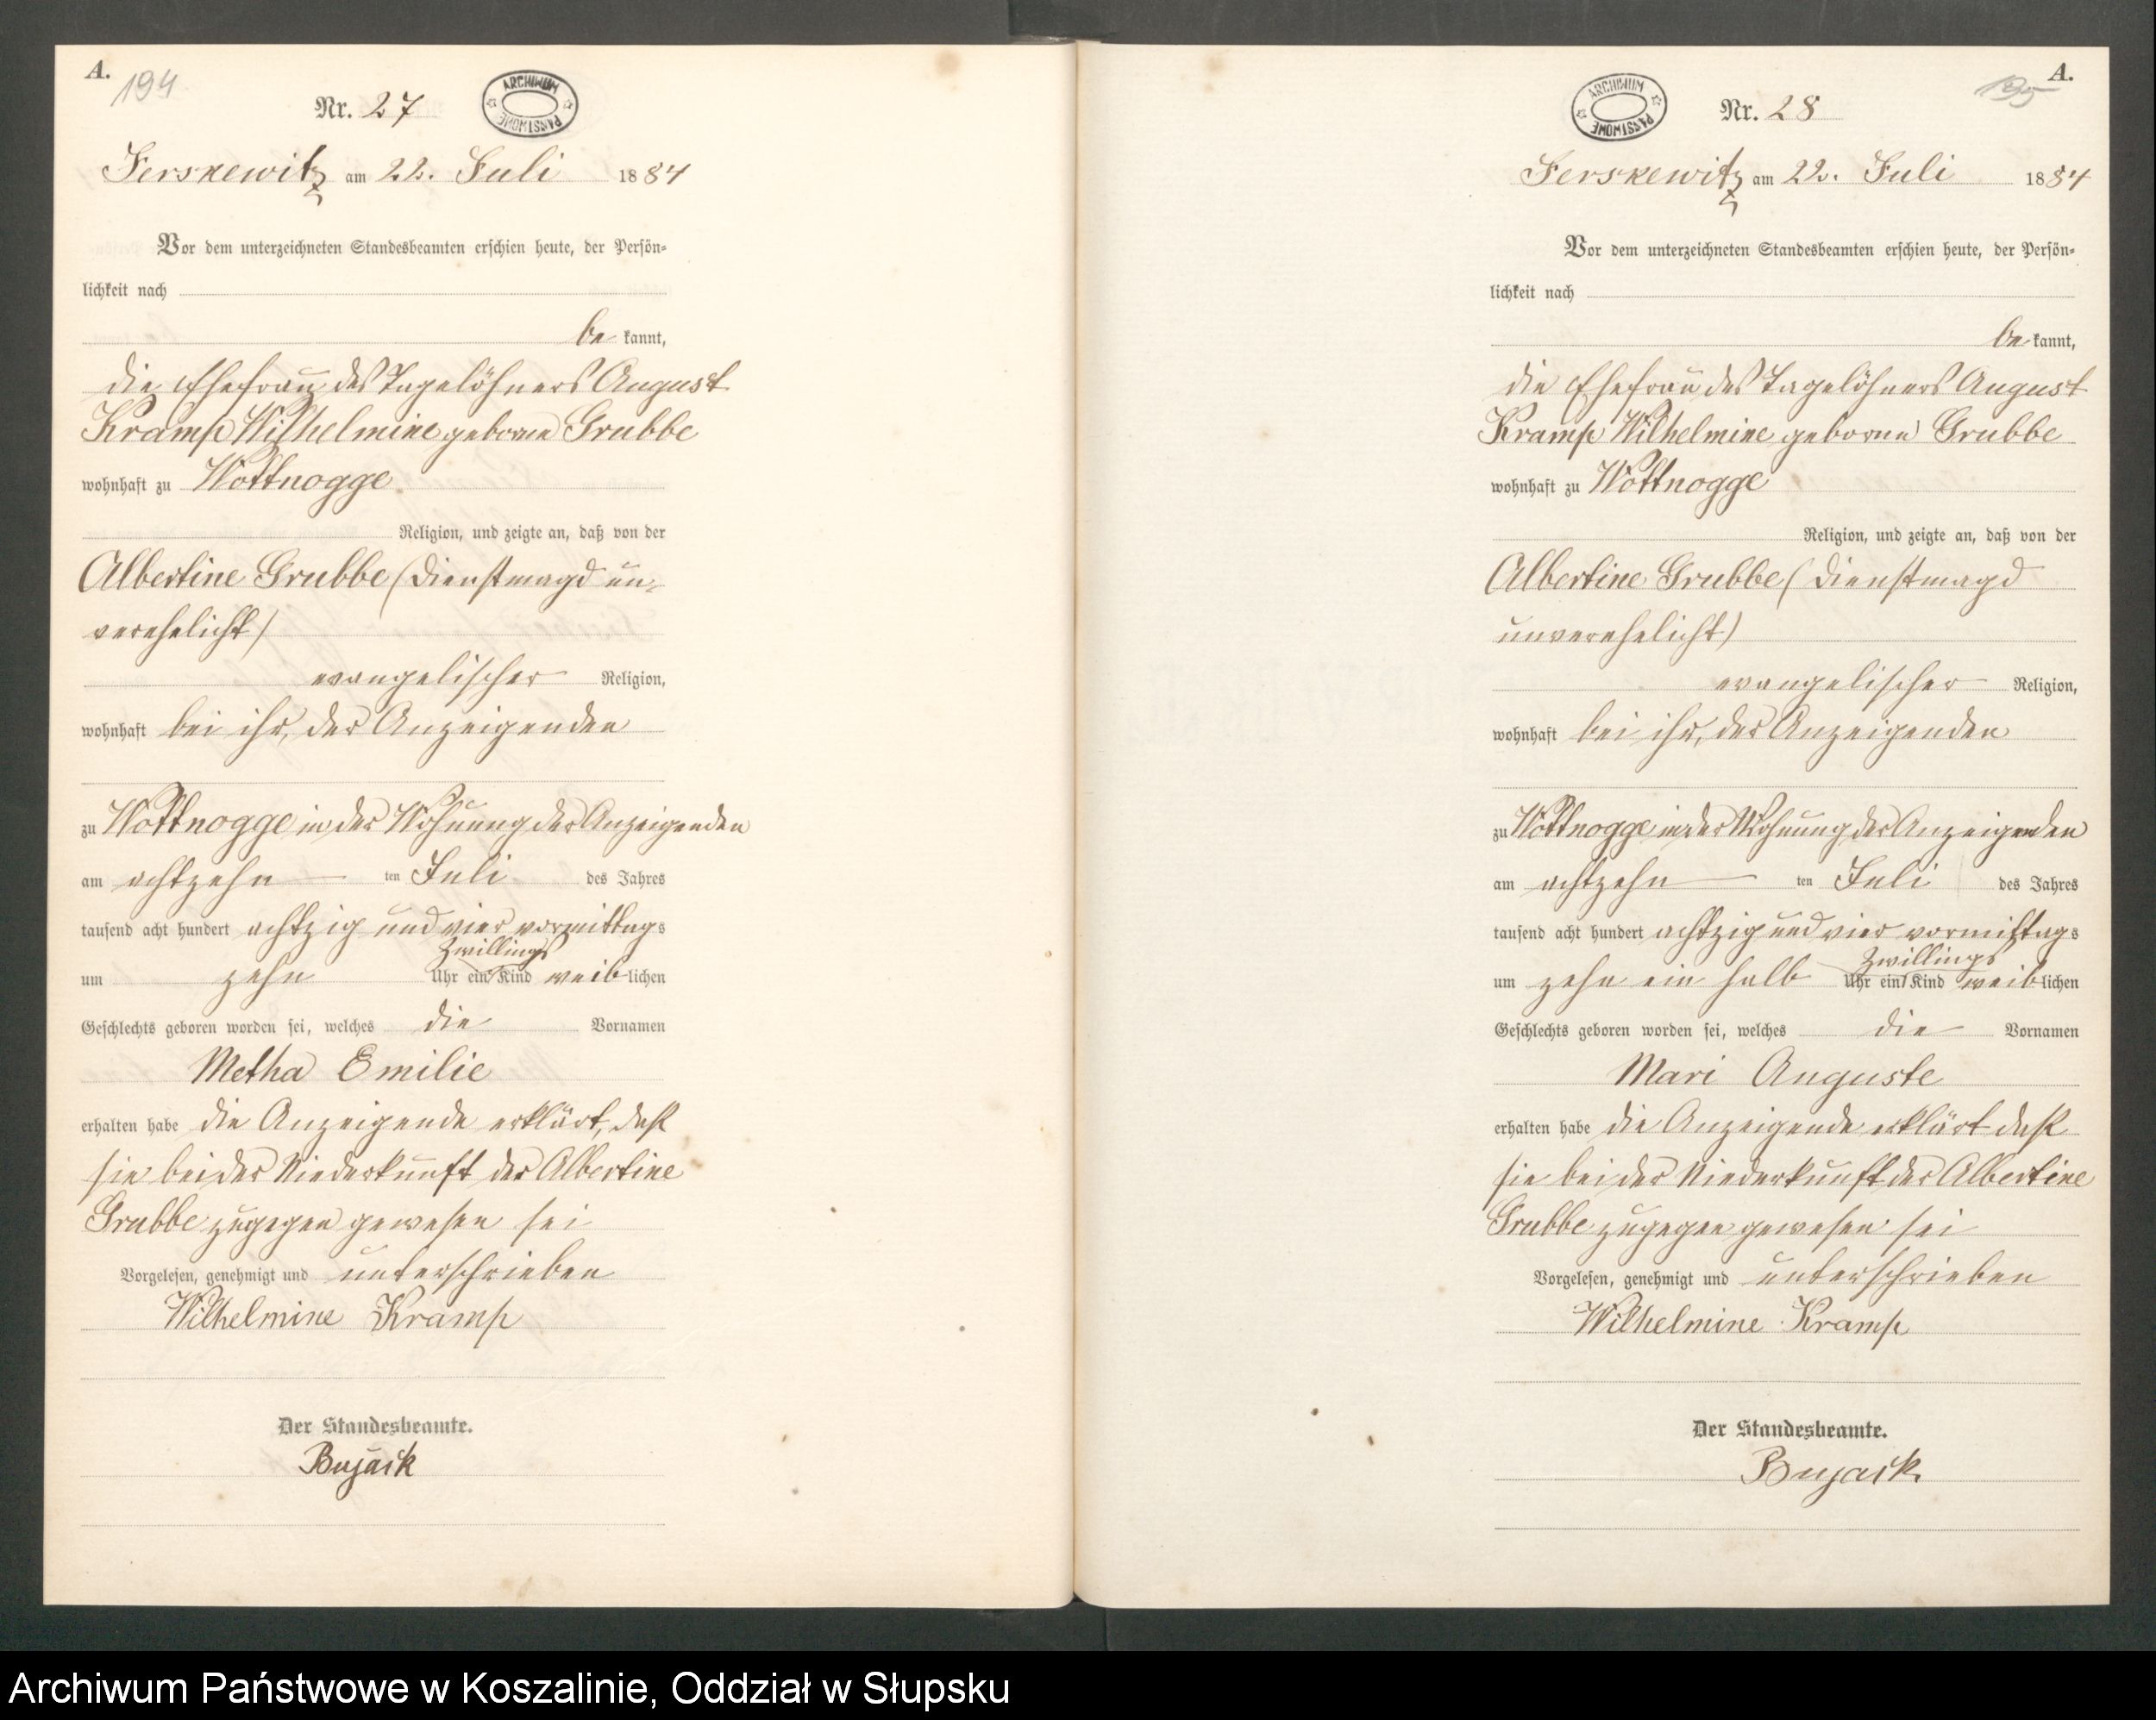 A.
194
Nr. 27
ARCHIWUM PAŃSTWOWE
Jerskewitz am 22. Juli 1884
Vor dem unterzeichneten Standesbeamten erschien heute, der Persön-
lichkeit nach
be kannt,
die Ehefrau des Tagelöhners August
Kramp Wilhelmine geborne Grubbe
wohnhaft zu Wottnogge
Religion, und zeigte an, daß von der
Albertine Grubbe (Dienstmagd un-
verehelicht)
evangelischer Religion,
wohnhaft bei ihr, der Anzeigenden
zu Wottnogge in der Wohnung der Anzeigenden
am achtzehn ten Juli des Jahres
tausend acht hundert achtzig und vier vormittags
um zehn Uhr ein Zwillings Kind weiblichen
Geschlechts geboren worden sei, welches die Vornamen
Metha Emilie
erhalten habe die Anzeigende erklärt, daß
sie bei der Niederkunft der Albertine
Grubbe zugegen gewesen sei
Vorgelesen, genehmigt und unterschrieben
Wilhelmine Kramp
Der Standesbeamte.
Bujack
A.
195
ARCHIWUM PAŃSTWOWE
Nr. 28
Jerskewitz am 22. Juli 1884
Vor dem unterzeichneten Standesbeamten erschien heute, der Persön-
lichkeit nach
be kannt,
die Ehefrau des Tagelöhners August
Kramp Wilhelmine geborne Grubbe
wohnhaft zu Wottnogge
Religion, und zeigte an, daß von der
Albertine Grubbe (Dienstmagd
unverehelicht)
evangelischer Religion,
wohnhaft bei ihr, der Anzeigenden
zu Wottnogge in der Wohnung der Anzeigenden
am achtzehn ten Juli des Jahres
tausend acht hundert achtzig und vier vormittags
um zehn ein halb Uhr ein Zwillings Kind weiblichen
Geschlechts geboren worden sei, welches die Vornamen
Mari Auguste
erhalten habe die Anzeigende erklärt daß
sie bei der Niederkunft der Albertine
Grubbe zugegen gewesen sei
Vorgelesen, genehmigt und unterschrieben
Wilhelmine Kramp
Der Standesbeamte.
Bujack.
Archiwum Państwowe w Koszalinie, Oddział w Słupsku